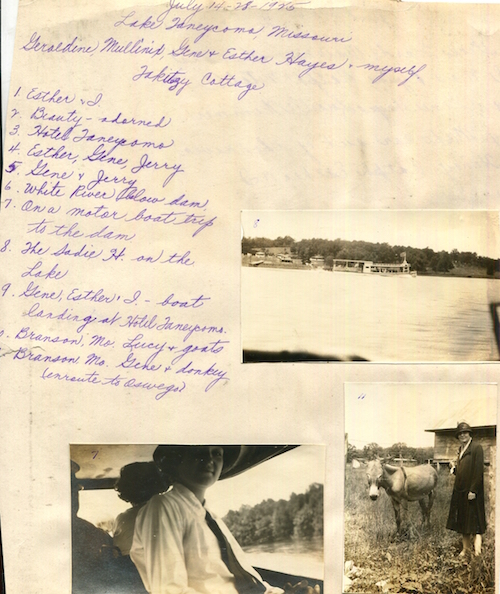 July 14-28-1925
Lake Taneycomo Missouri
Geraldine Mullinix, Gene & Esther Hayes & myself.
Takitezy Cottage
1. Esther & I.
2. Beauty - adorned
3. Hotel Taneycomo
4. Esther, Gene, Jerry
5. Gene & Jerry
6. White River below dam.
7. On a motor boat trip
to the dam
8. The Sadie H. on the
Lake
9. Gene, Esther & I. - boat
landing at Hotel Taneycomo.
Branson, Mo. Lucy & goats
Branson, Mo. Gene & donkey
(enroute to Oswego)
8
11
7